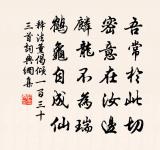 吾常於此切
密意在汝邊
麟龍不為瑞
鶴龜自成仙
釋法薰偈傾一百三十
三首詞典網集